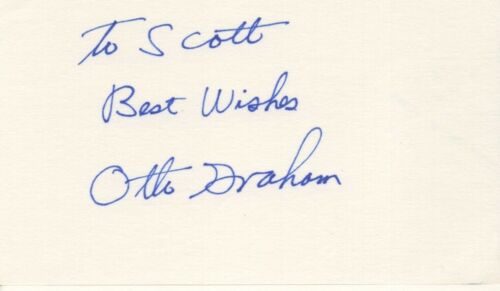 To Scott
Best Wishes
Otto Graham